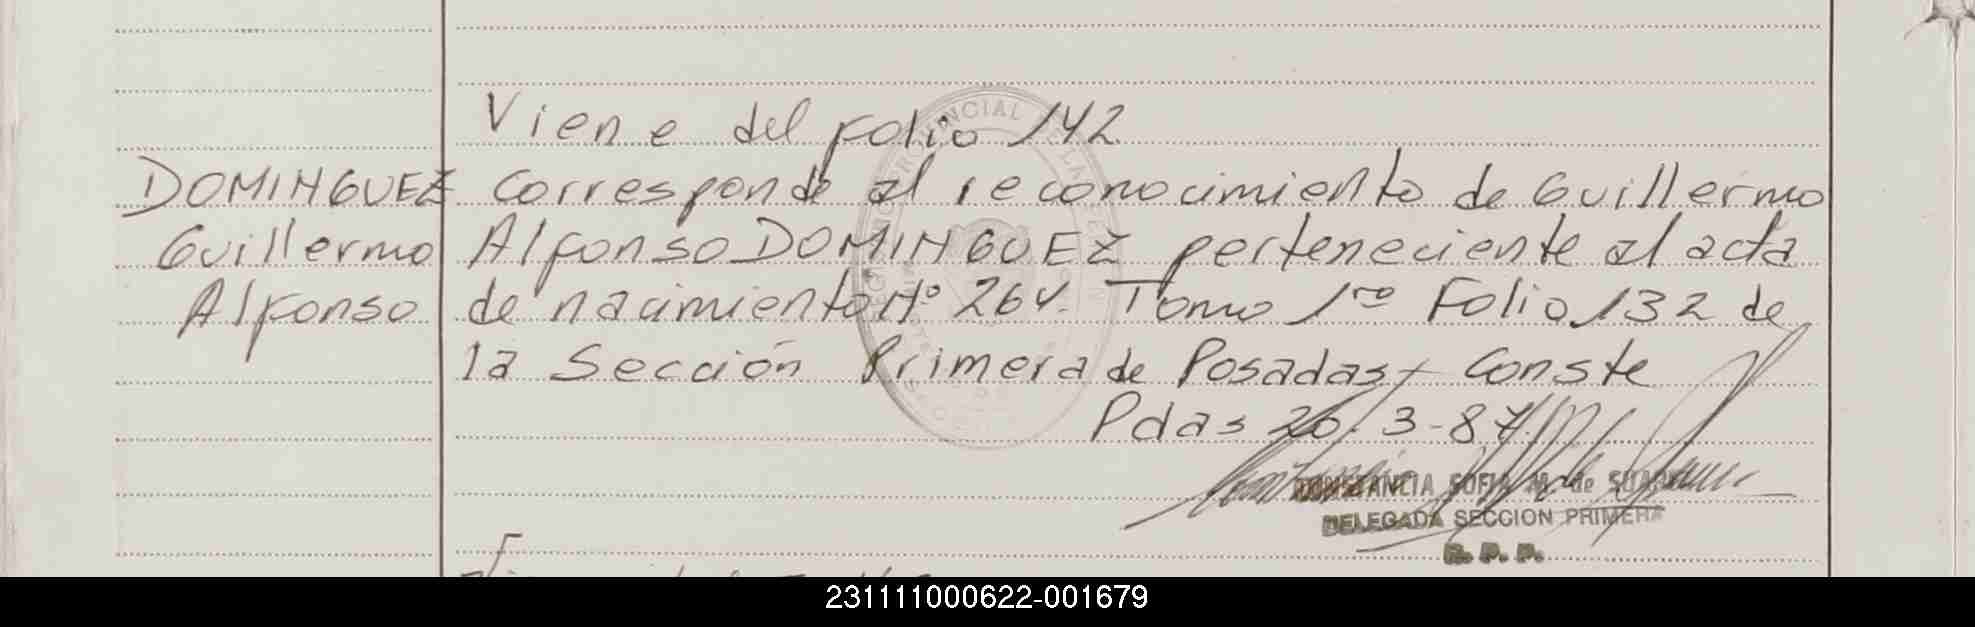 Viene del folio 142
DOMINGUEZ
Guillermo
Alfonso
Corresponde al reconocimiento de Guillermo
Alfonso DOMINGUEZ perteneciente al acta
de nacimiento Nº 264. Tomo 1ro Folio 132 de
la Sección Primera de Posadas Conste
Pdas 26.3-87.
CONSTANCIA SOFIA M. de
DELEGADA SECCION PRIMERA
R. P. P.
231111000622-001679